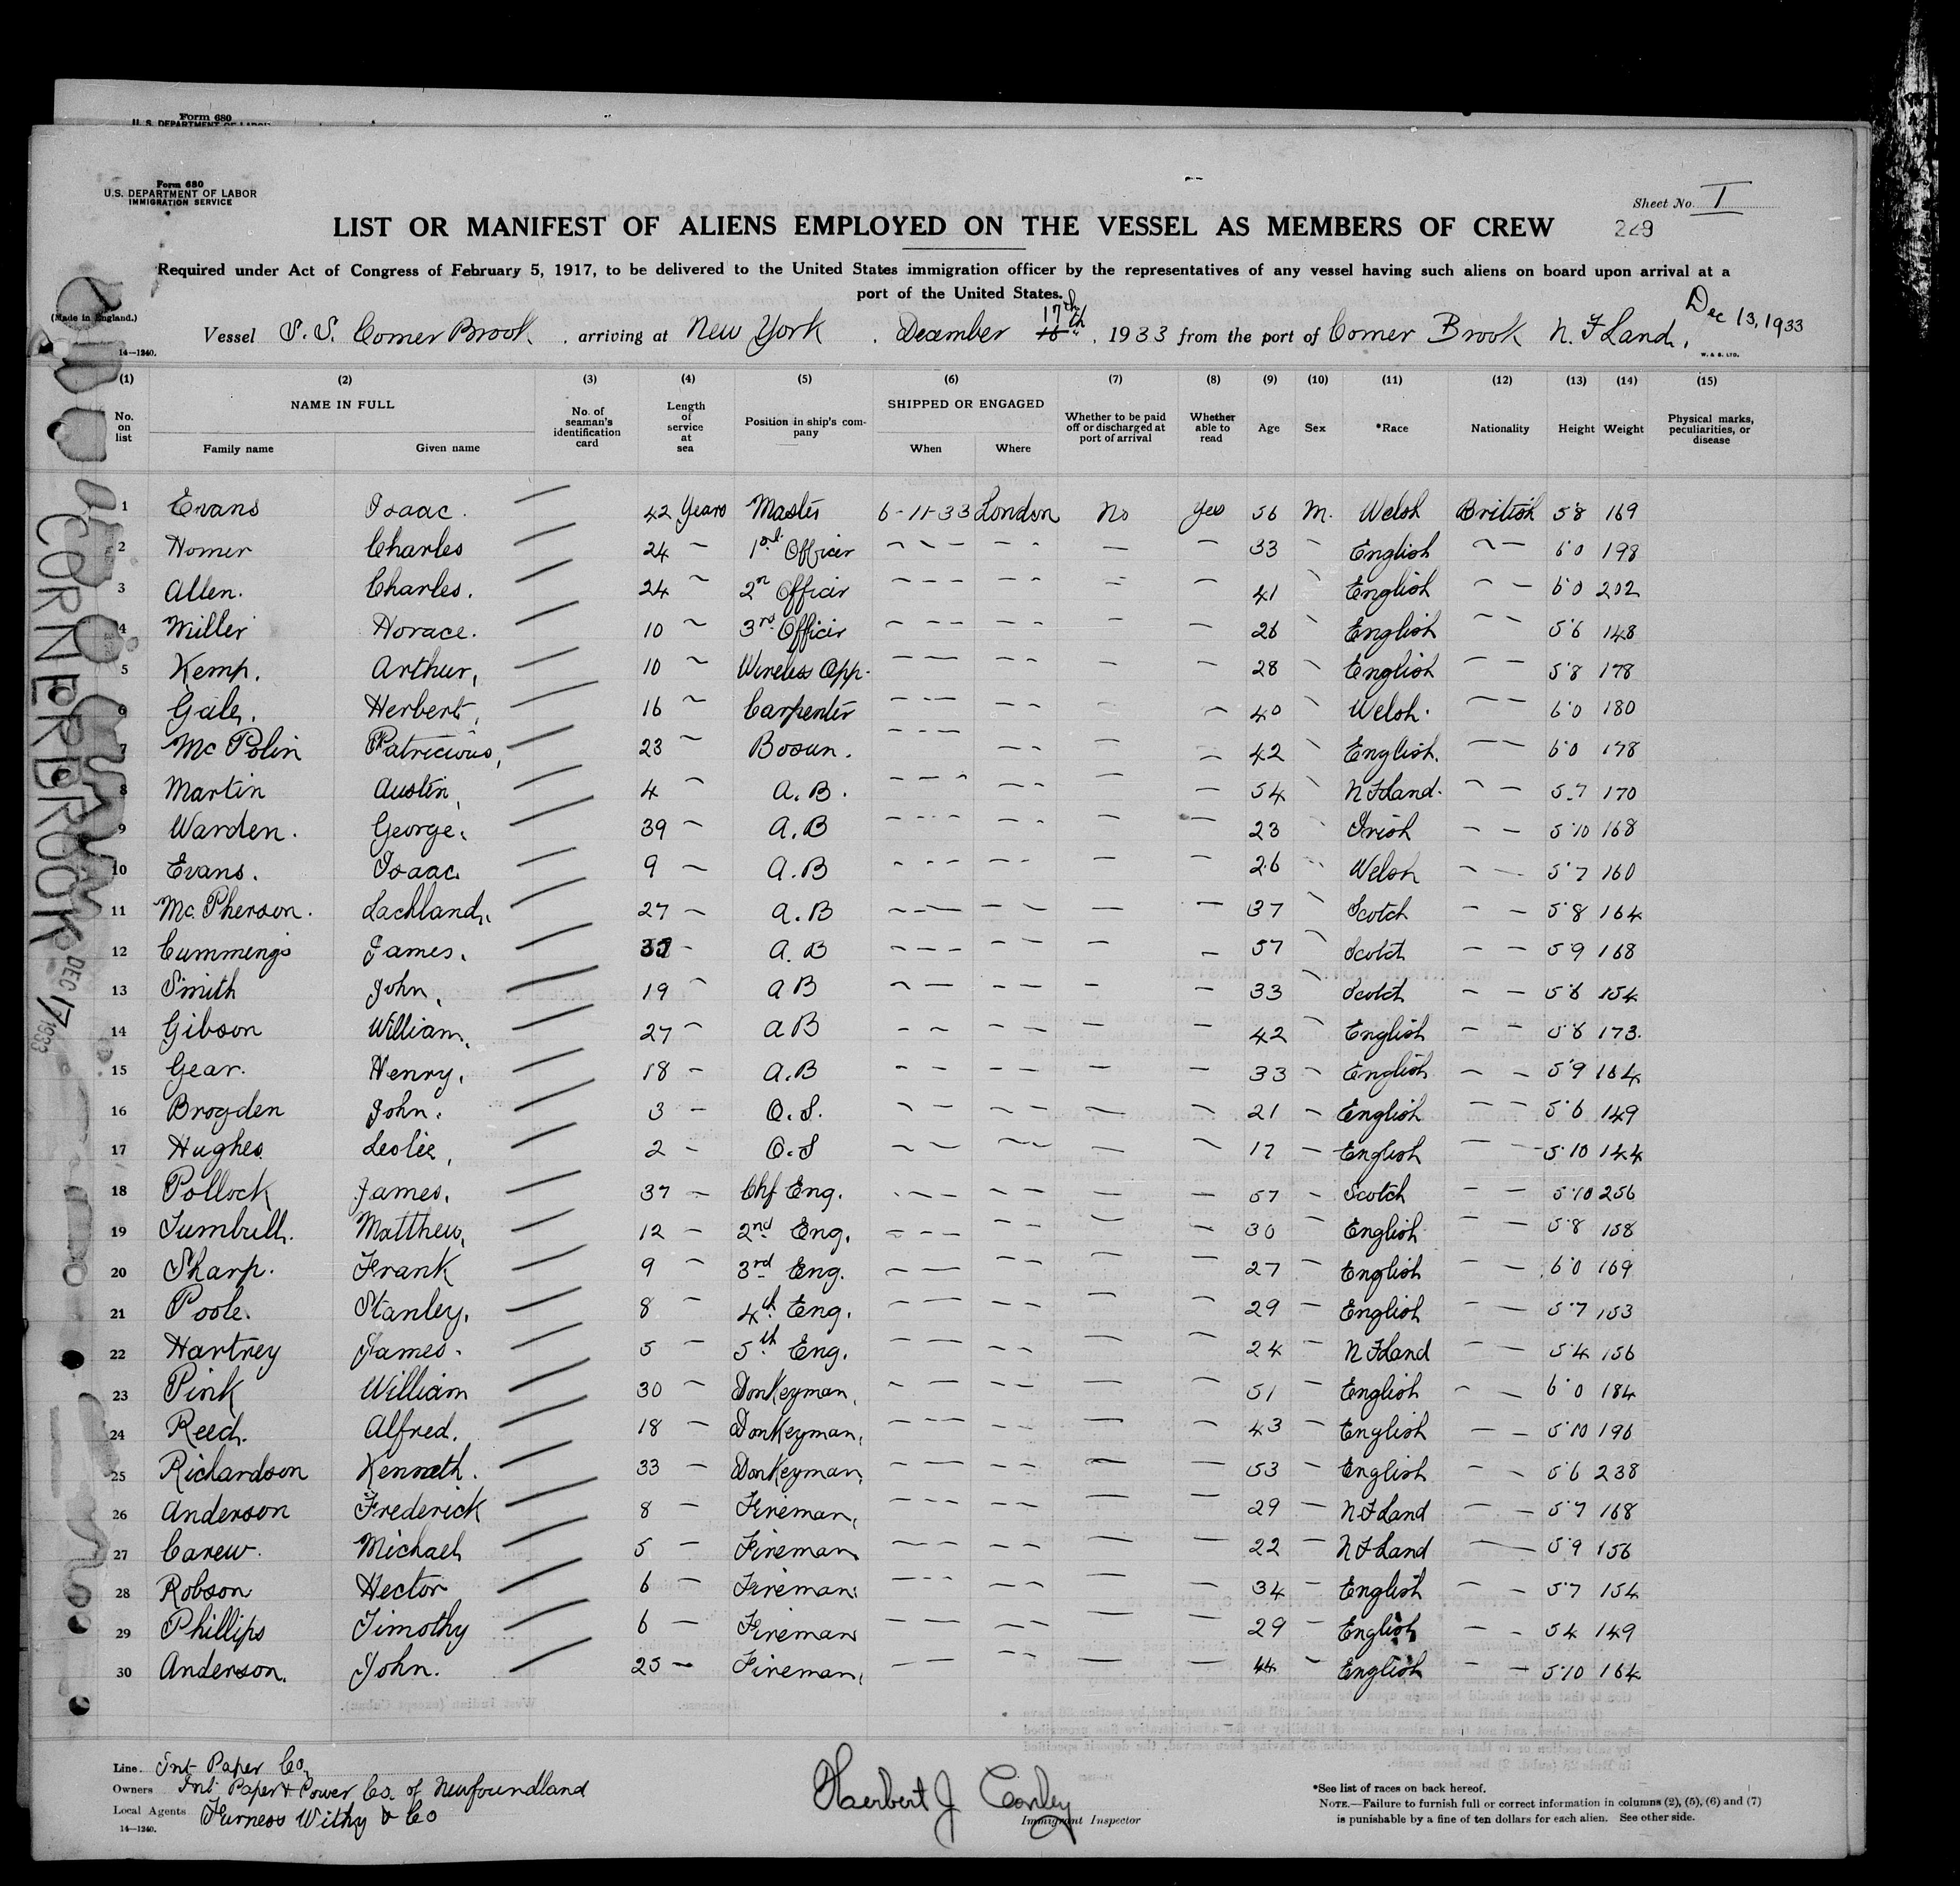 Form 680
U. S. DEPARTMENT OF LABOR
Form 680
U.S. DEPARTMENT OF LABOR
IMMIGRATION SERVICE
Sheet No. I
249
LIST OR MANIFEST OF ALIENS EMPLOYED ON THE VESSEL AS MEMBERS OF CREW
Required under Act of Congress of February 5, 1917, to be delivered to the United States immigration officer by the representatives of any vessel having such aliens on board upon arrival at a
port of the United States.
(Made in England.)
Dec 13, 1933
17th
Vessel S.S. Corner Brook, arriving at New York, December 16th, 1933 from the port of Corner Brook N.F.Land.
14—1240.
W. & S. LTD.
(1) (2) (3) (4) (5) (6) (7) (8) (9) (10) (11) (12) (13) (14) (15)
No. on list NAME IN FULL Family name Given name No. of seaman's identification card Length of service at sea Position in ship's company SHIPPED OR ENGAGED When Where Whether to be paid off or discharged at port of arrival Whether able to read Age Sex *Race Nationality Height Weight Physical marks, peculiarities, or disease
1 Evans Isaac. 42 Years Master 6-11-33 London No Yes 56 M. Welsh British 5'8 169
2 Homer Charles 24 1st Officer 33 English 6'0 198
3 Allen. Charles. 24 2n Officer 41 English 6'0 202
4 Miller Horace. 10 3rd Officer 26 English 5'6 148
5 Kemp. Arthur, 10 Wireless Opp. 28 English 5'8 178
6 Gale, Herbert, 16 Carpenter 40 Welsh. 6'0 180
7 Mc Polin Patricious, 23 Bosun. 42 English. 6'0 178
8 Martin Austin, 4 A.B. 54 N.F.Land. 5.7 170
9 Warden. George, 39 A.B 23 Irish 5'10 168
10 Evans. Isaac 9 A.B 26 Welsh 5'7 160
11 Mc. Pherson. Lachland, 27 A.B 37 Scotch 5'8 164
12 Cummings James. A.B 57 Scotch 5'9 168
13 Smith John, 19 AB 33 Scotch 5'6 154
14 Gibson William, 27 AB 42 English 5'8 173.
15 Gear. Henry. 18 A.B 33 English 5'9 164
16 Brogden John. 3 O.S. 21 English 5'6 149
17 Hughes Leslie, 2 O.S 17 English 5'10 144
18 Pollock James. 37 Chf Eng. 57 Scotch 5'10 256
19 Turnbull. Matthew, 12 2nd Eng. 30 English 5'8 158
20 Sharp. Frank 9 3rd Eng. 27 English 6'0 169
21 Poole. Stanley. 8 4th Eng. 29 English 5'7 153
22 Hartrey James. 5 5th Eng. 24 N.F.Land 5'4 156
23 Pink William 30 Donkeyman. 51 English 6'0 184
24 Reed. Alfred. 18 Donkeyman. 43 English 5'10 196
25 Richardson Kenneth. 33 Donkeyman 53 English 5'6 238
26 Anderson Frederick 8 Fireman, 29 N.F.Land 5'7 168
27 Carew. Michael 5 Fireman 22 N.F.Land 5'9 156
28 Robson Hector 6 Fireman 34 English 5'7 154
29 Phillips Timothy 6 Fireman 29 English 5 4 149
30 Anderson. John. 25 Fireman, 44 English 5'10 164
CORNERBROOK DEC 17 1933
Line. Int. Paper Co,
Owners Int. Paper & Power Co. of Newfoundland
Local Agents Furness Withy & Co
14—1240.
Herbert J Conley
Immigrant Inspector
*See list of races on back hereof.
NOTE.—Failure to furnish full or correct information in columns (2), (5), (6) and (7)
is punishable by a fine of ten dollars for each alien. See other side.